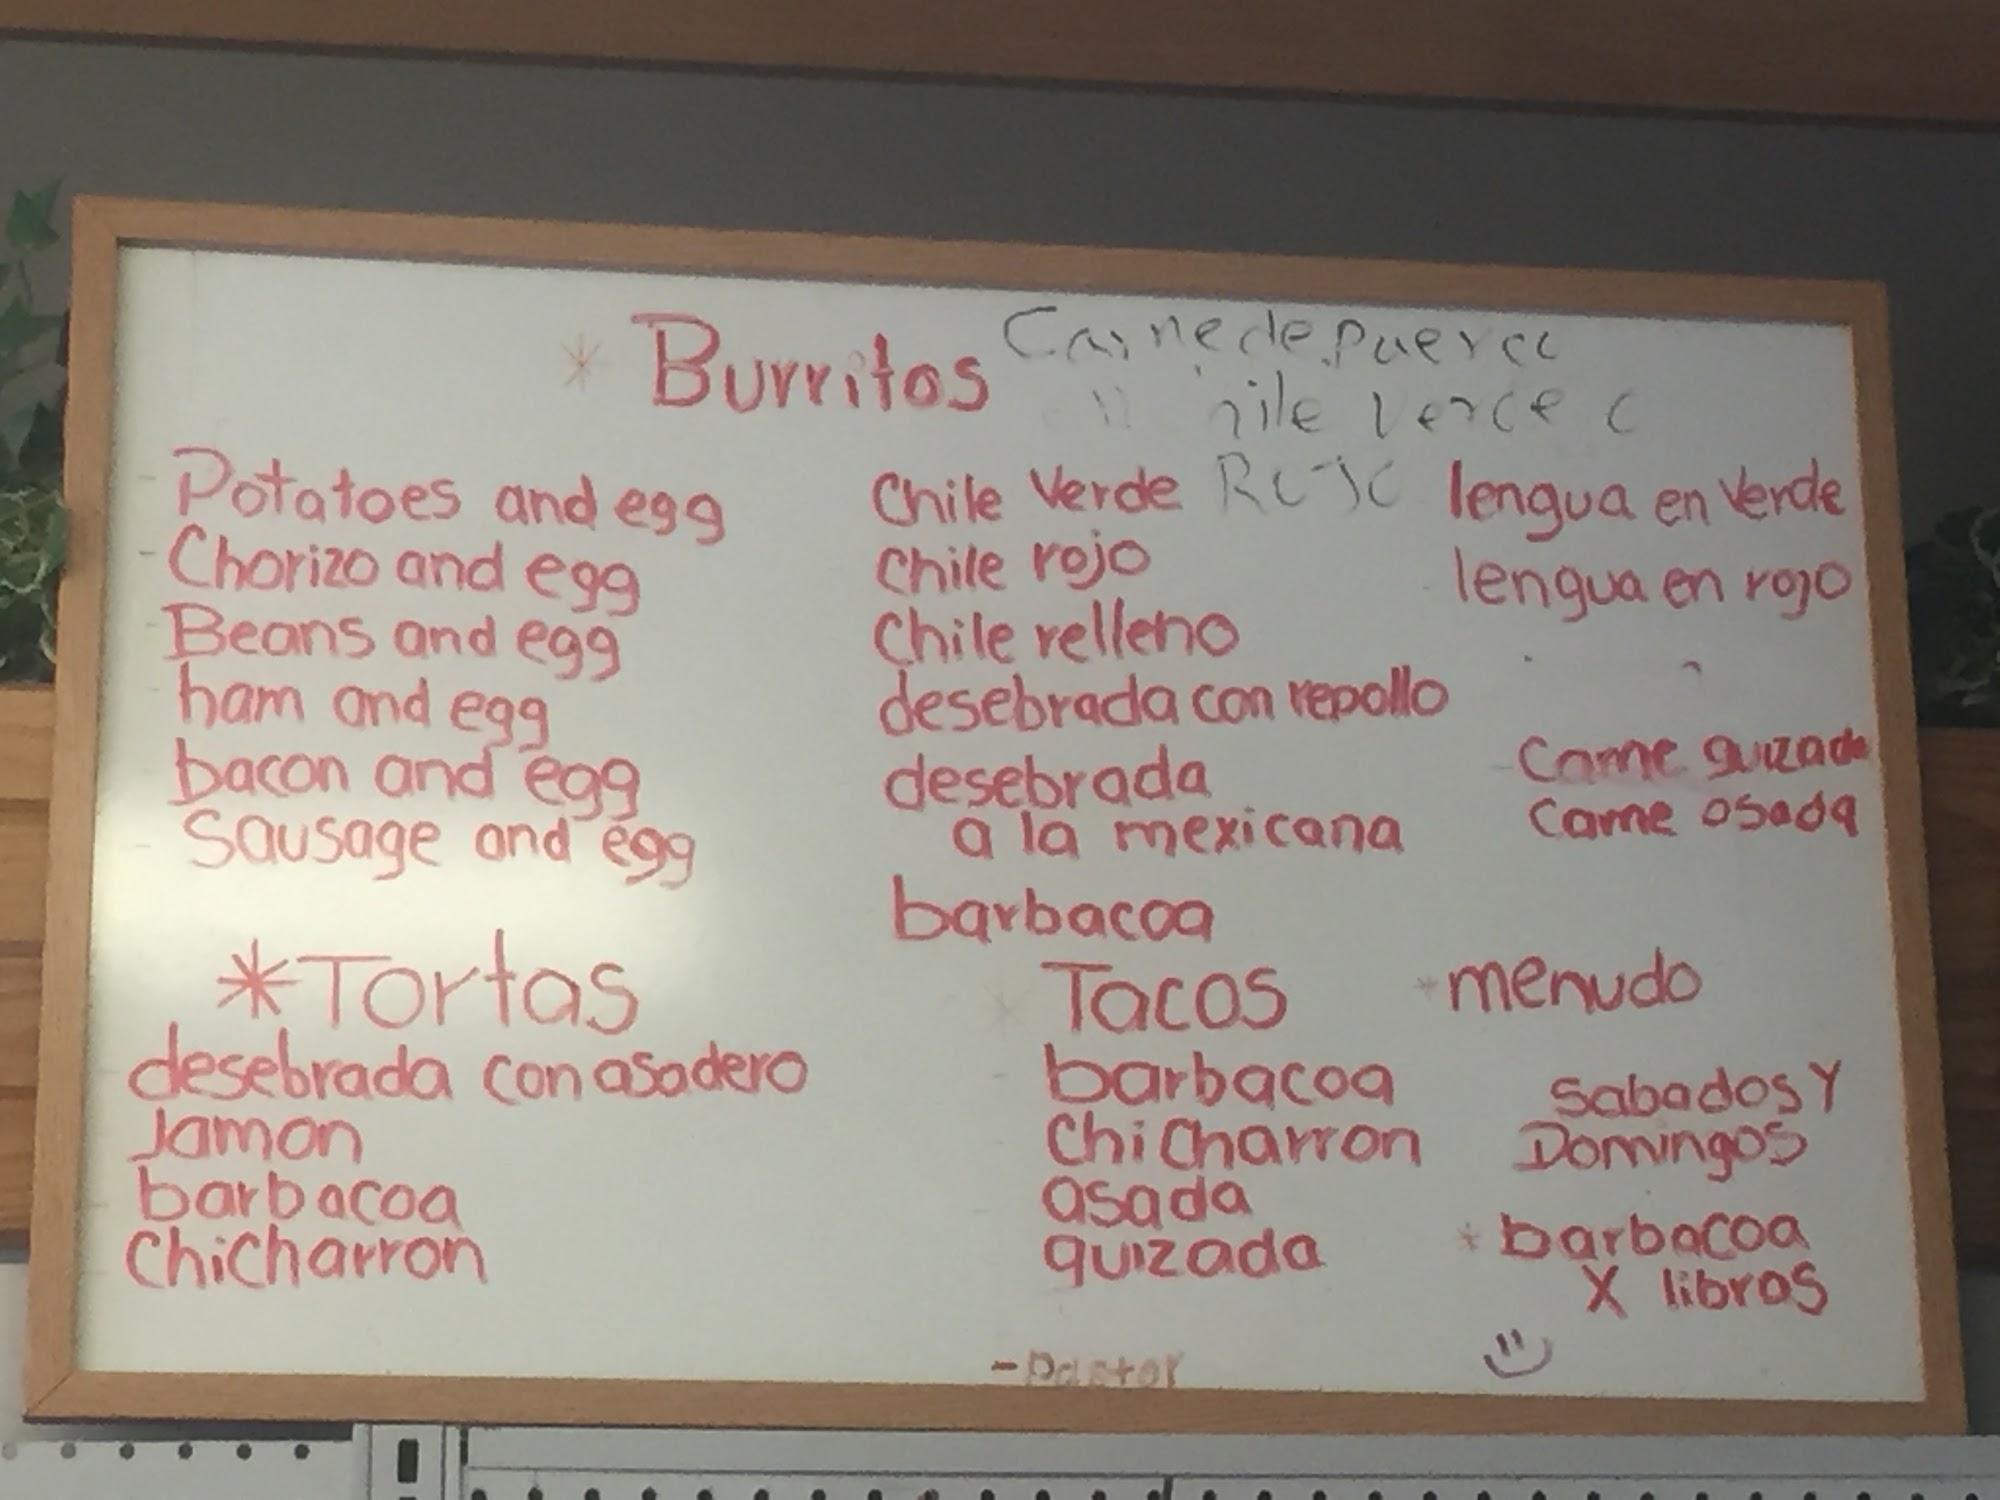 * Burritos
Carne de puerca
chile verde o
Rojo
- Potatoes and egg
- Chorizo and egg
- Beans and egg
- ham and egg
bacon and egg
- Sausage and egg
Chile Verde
Chile rojo
Chile relleno
desebrada con repollo
desebrada
a la mexicana
barbacoa
lengua en Verde
lengua en rojo
- Carne guizada
Carne asada
* Tortas
desebrada con asadero
Jamon
barbacoa
Chicharron
* Tacos
- barbacoa
- Chicharron
- asada
guizada
- Pastor
* menudo
Sabados y
Domingos
* barbacoa
X libras